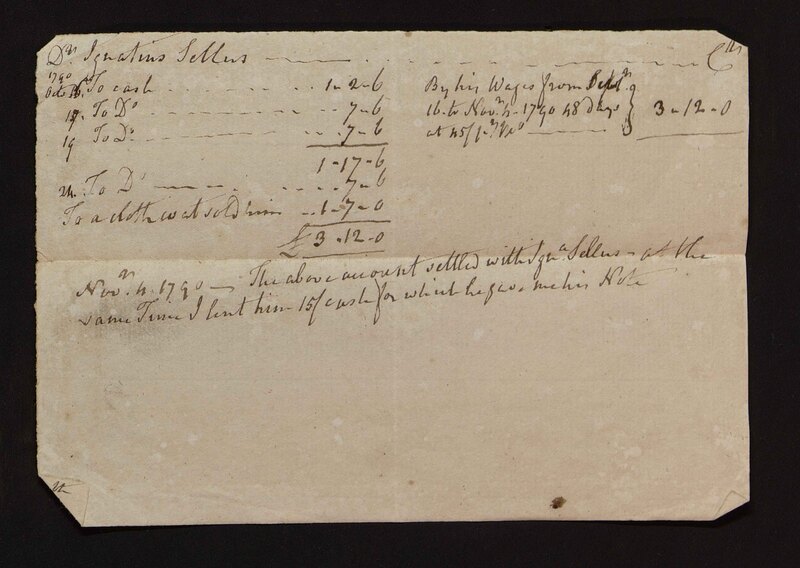 Dr. Ignatius Sellus — — — — — — — Cr
1790
Octo 16. To cash — — — 1-2-6
18. To Do — — — 7-6
19 To Do — — — 7-6
1-17-6
24. To Do — — — 7-6
To a cloth coat sold him — 1-7-0
£ 3-12-0
By his Wages from Septr
16 to Novr. 4. 1790 48 days
at 45/ pr Mo — 3-12-0
Novr. 4. 1790 — The above account settled with Igna. Sellus — at the
same Time I lent him 15/ cash for which he gave me his Note